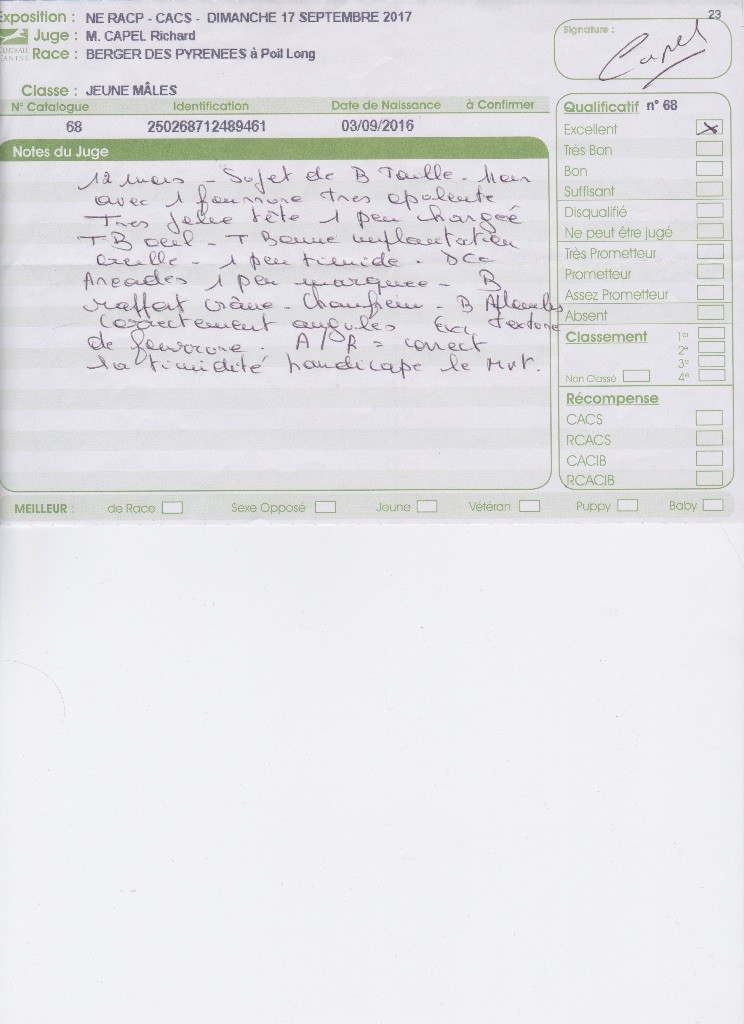 Exposition : NE RACP - CACS - DIMANCHE 17 SEPTEMBRE 2017
23
Juge : M. CAPEL Richard
Race : BERGER DES PYRENEES à Poil Long
CENTRALE
CANINE
Signature :
Capel
Classe : JEUNE MÂLES
N° Catalogue Identification Date de Naissance à Confirmer
68 250268712489461 03/09/2016
Notes du Juge
12 mois - Sujet de B Taille -
avec 1 fourrure très opulente
Très jolie tête 1 peu chargée
TB oeil - T Bonne implantation
oreille - 1 peu timide -
Arcades 1 peu marquée - B
rapport crâne - Chanfrein - B Aplombs
Correctement angulés Exc Texture
de fourrure. A/R = correct
la timidité handicape le Mvt.
Qualificatif n° 68
Excellent X
Très Bon
Bon
Suffisant
Disqualifié
Ne peut être jugé
Très Prometteur
Prometteur
Assez Prometteur
Absent
Classement 1er
2e
3e
Non Classé 4e
Récompense
CACS
RCACS
CACIB
RCACIB
MEILLEUR : de Race Sexe Opposé Jeune Vétéran Puppy Baby